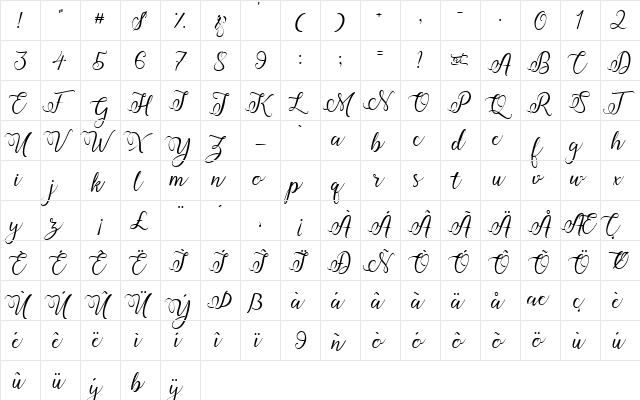 ! " # $ % & ' ( ) + , - . 0 1 2
3 4 5 6 7 8 9 : ; = ? A B C D
E F G H I J K L M N O P Q R S T
U V W X Y Z – ` a b c d e f g h
i j k l m n o p q r s t u v w x
y z ¡ £ ¨ ´ ¡ À Á Â Ã Ä Å Æ Ç
È É Ê Ë Ì Í Î Ï Ð Ñ Ò Ó Ô Õ Ö Ø
Ù Ú Û Ü Ý Þ ß à á â ã ä å æ ç è
é ê ë ì í î ï ð ñ ò ó ô õ ö ù ú
û ü ý þ ÿ